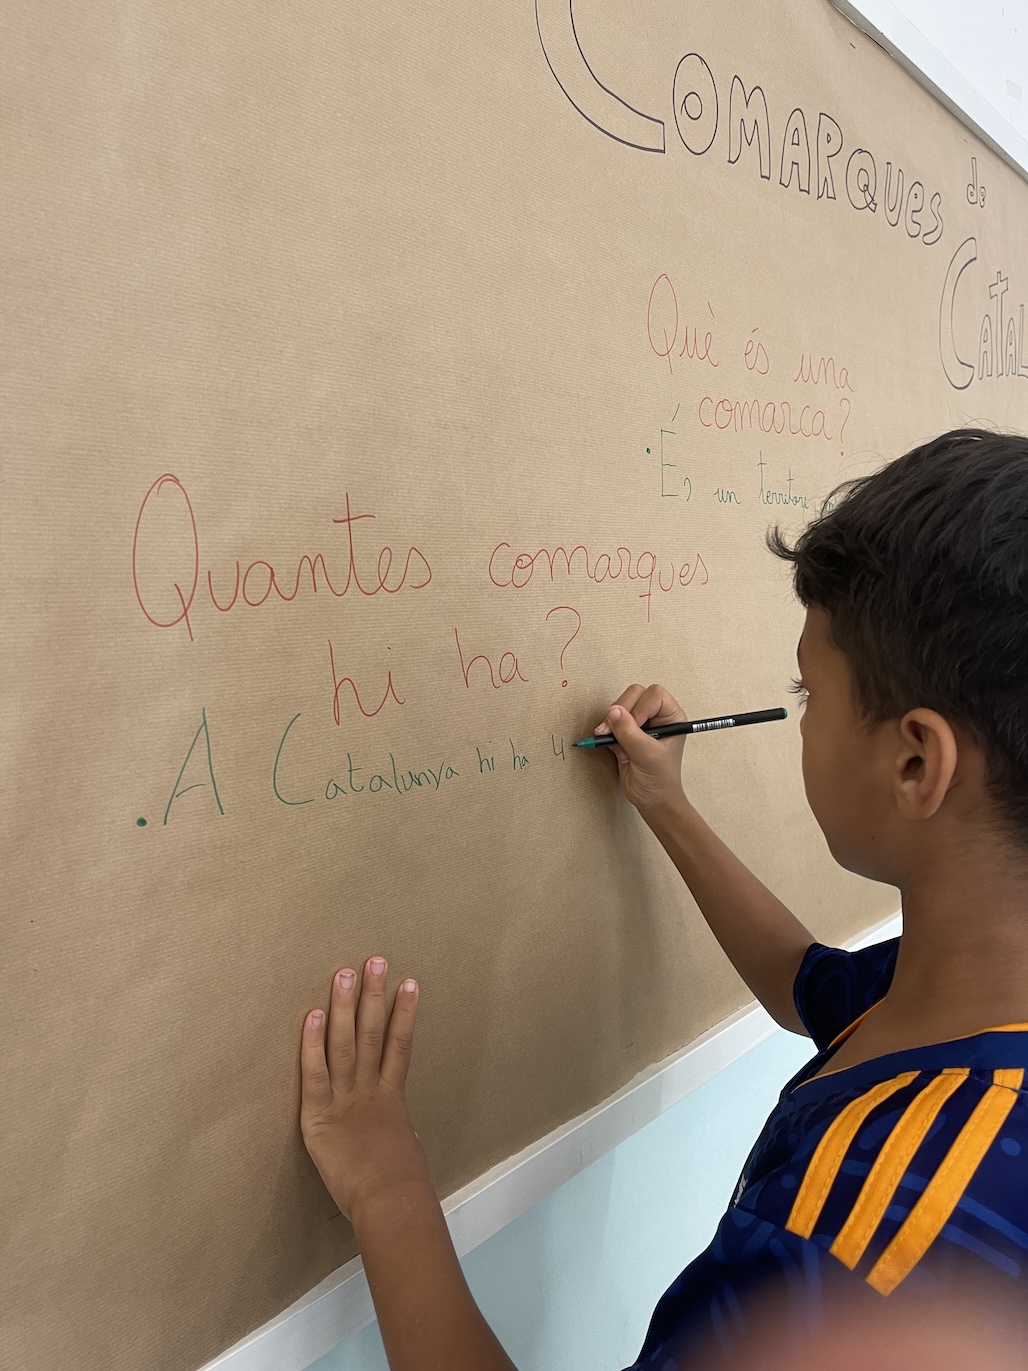 COMARQUES de
CATAL
Què és una
comarca?
· És un territori
Quantes comarques
hi ha?
· A Catalunya hi ha 4